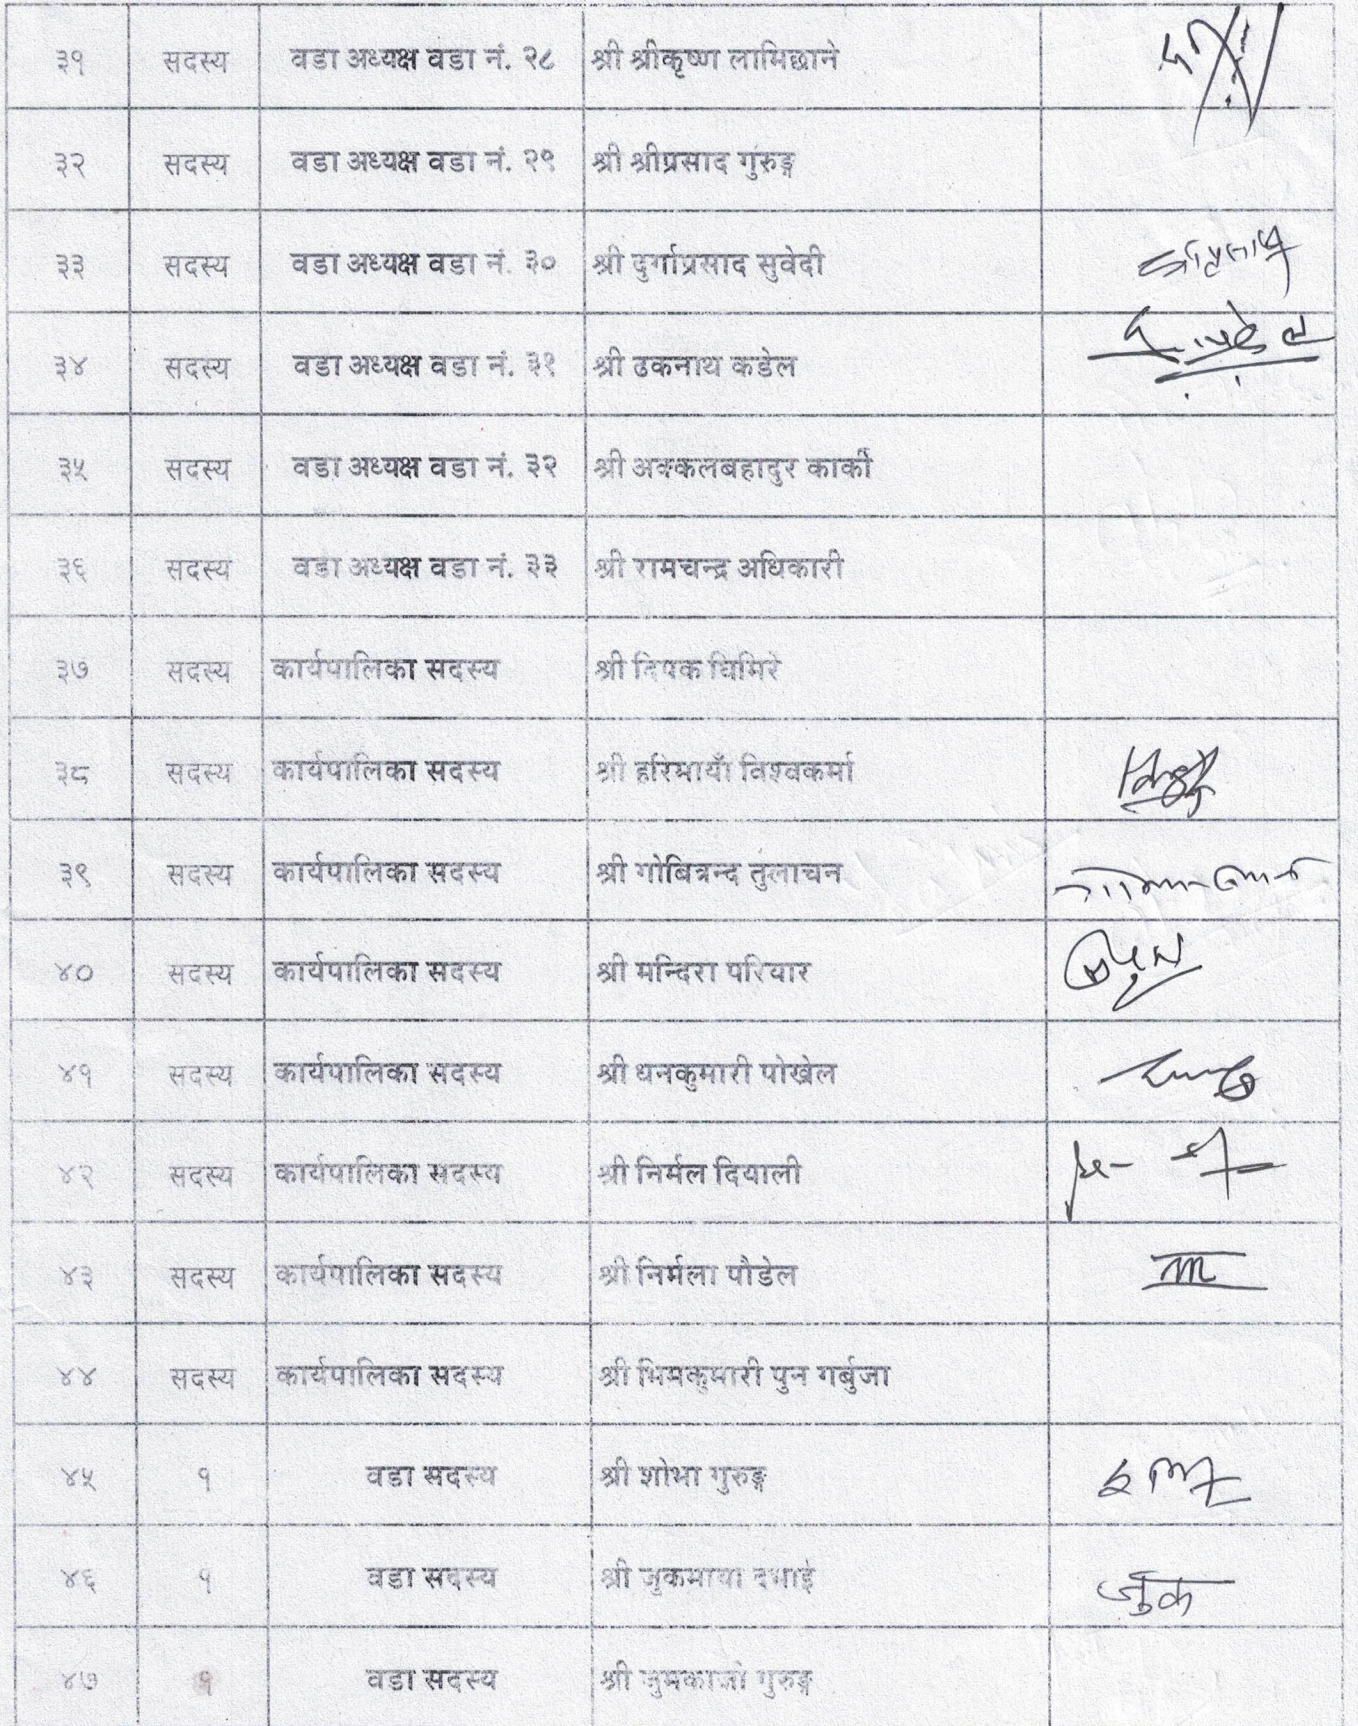 ३१ सदस्य वडा अध्यक्ष वडा नं. २८ श्री श्रीकृष्ण लामिछाने
३२ सदस्य वडा अध्यक्ष वडा नं. २९ श्री श्रीप्रसाद गुरुङ्ग
३३ सदस्य वडा अध्यक्ष वडा नं. ३० श्री दुर्गाप्रसाद सुवेदी
३४ सदस्य वडा अध्यक्ष वडा नं. ३१ श्री ढकनाथ कडेल
३५ सदस्य वडा अध्यक्ष वडा नं. ३२ श्री अक्कलबहादुर कार्की
३६ सदस्य वडा अध्यक्ष वडा नं. ३३ श्री रामचन्द्र अधिकारी
३७ सदस्य कार्यपालिका सदस्य श्री दिपक घिमिरे
३८ सदस्य कार्यपालिका सदस्य श्री हरिमायाँ विश्वकर्मा
३९ सदस्य कार्यपालिका सदस्य श्री तुलाचन
४० सदस्य कार्यपालिका सदस्य श्री मन्दिरा परियार
४१ सदस्य कार्यपालिका सदस्य श्री धनकुमारी पोखेल
४२ सदस्य कार्यपालिका सदस्य श्री निर्मल दियाली
४३ सदस्य कार्यपालिका सदस्य श्री निर्मला पौडेल
४४ सदस्य कार्यपालिका सदस्य श्री भिमकुमारी पुन गर्बुजा
४५ १ वडा सदस्य श्री शोभा गुरुङ्ग
४६ १ वडा सदस्य श्री जुकमाया दमाई जुक
४७ १ वडा सदस्य श्री गुरुङ्ग